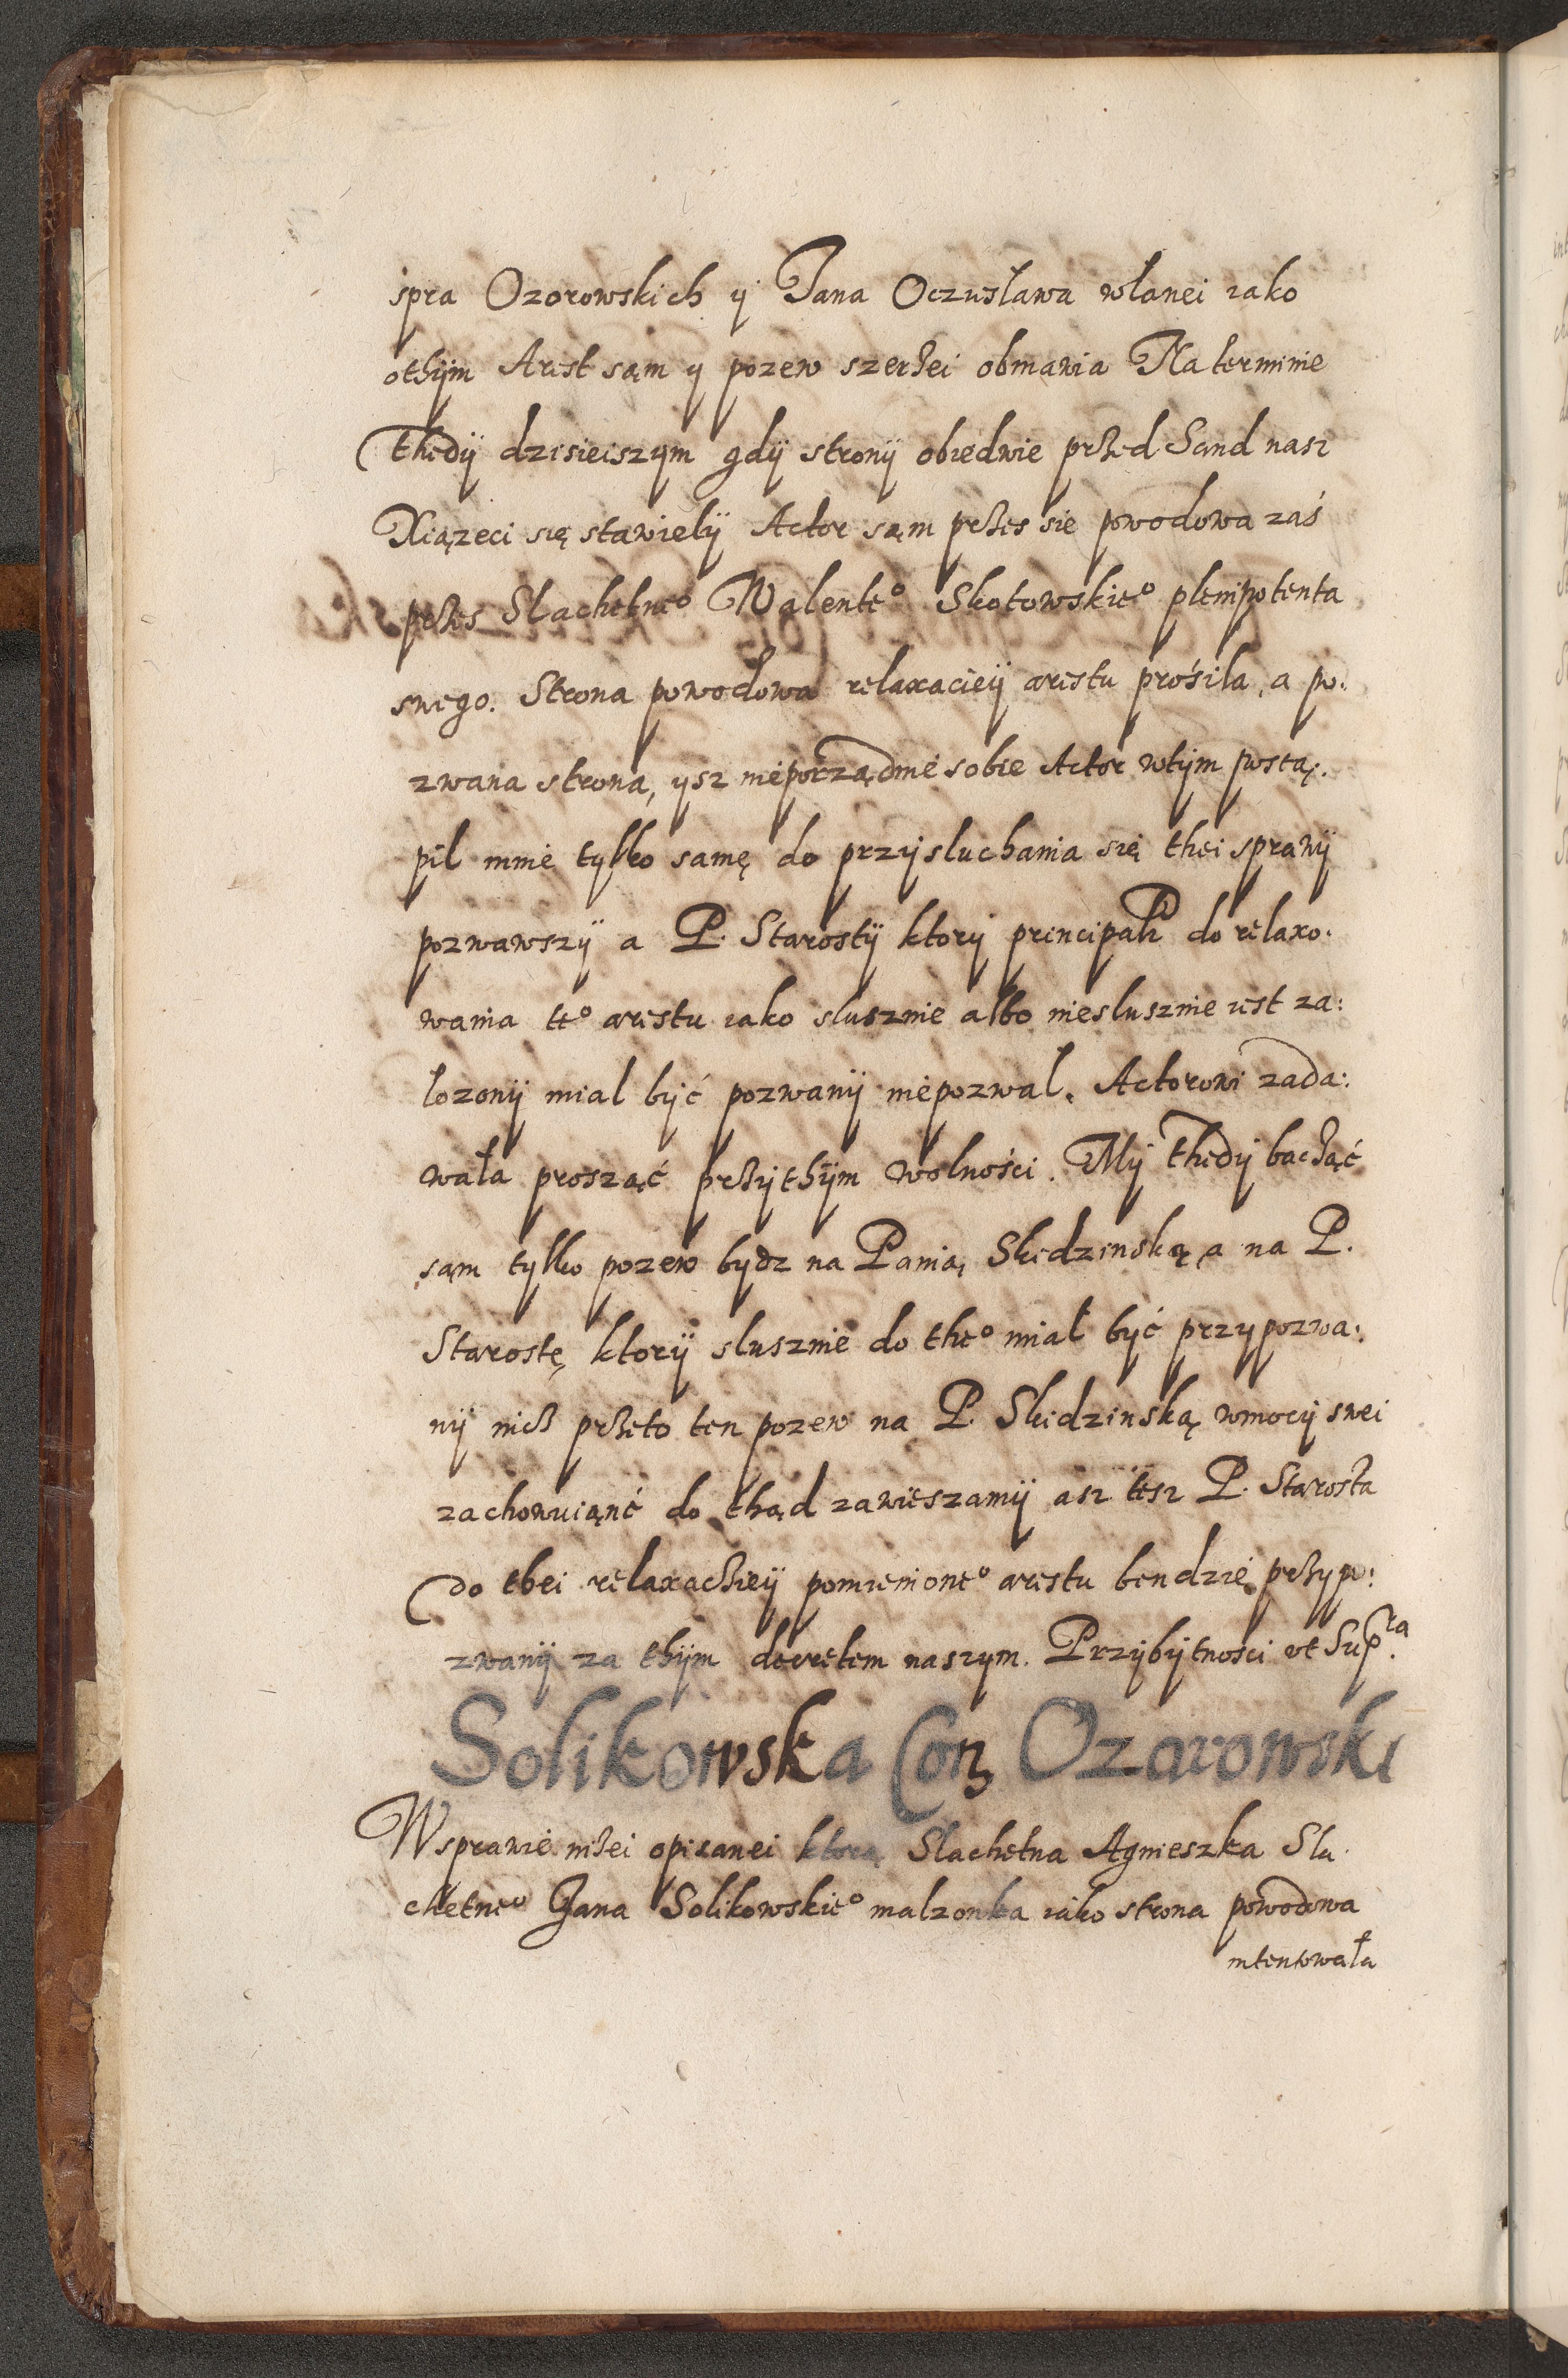 spra Ozorowskich ÿ Jana Oczusława włanei iako
othÿm Arest sąm y pozew szerzei obmawia Na terminie
thedÿ dzisieiszym gdÿ stronÿ obiedwie przed Sand nasz
Xiązeci się stawielÿ Actor sąm przes sie powodowa zaś
przes Slachetne° Walente° Skotowskie° plenipotenta
swego. Strona powodowa relaxacieÿ arestu prośila, a po:
zwana strona, ysz nieporządnie sobie Actor wtÿm pstą:
pil mnie tylko samę do przysluchania się thei sprawÿ
pozwawszÿ a P. Starostÿ ktory principalr do relaxo:
wania te° arestu iako slusznie albo nieslusznie iest za:
lozonÿ mial być pozwanÿ niepozwal. Actorowi zada:
wała prosząć przÿthÿm wolności. Mÿ thedÿ baczać
sąm tylko pozew bydz na Panią Skidzinską, a na P.
Starostę ktorÿ slusznie do the° miał być przypozwa:
nÿ nicz przeto ten pozew na P. Skidzinską wmocÿ swei
zachowuiąnć do thąd zawieszamÿ asz tesz P. Starosta
do thei relaxaczieÿ pomienione° arestu bendzie przypo:
zwanÿ za thÿm decretem naszym. Przÿbÿtności vt Supra.
Solikowska Con Ozarowski
Wsprawie niżei opisanei ktorą Slachetna Agnieszka Sla:
chetne° Jana Solikowskie° malzonka iako strona powodowa
intentowała